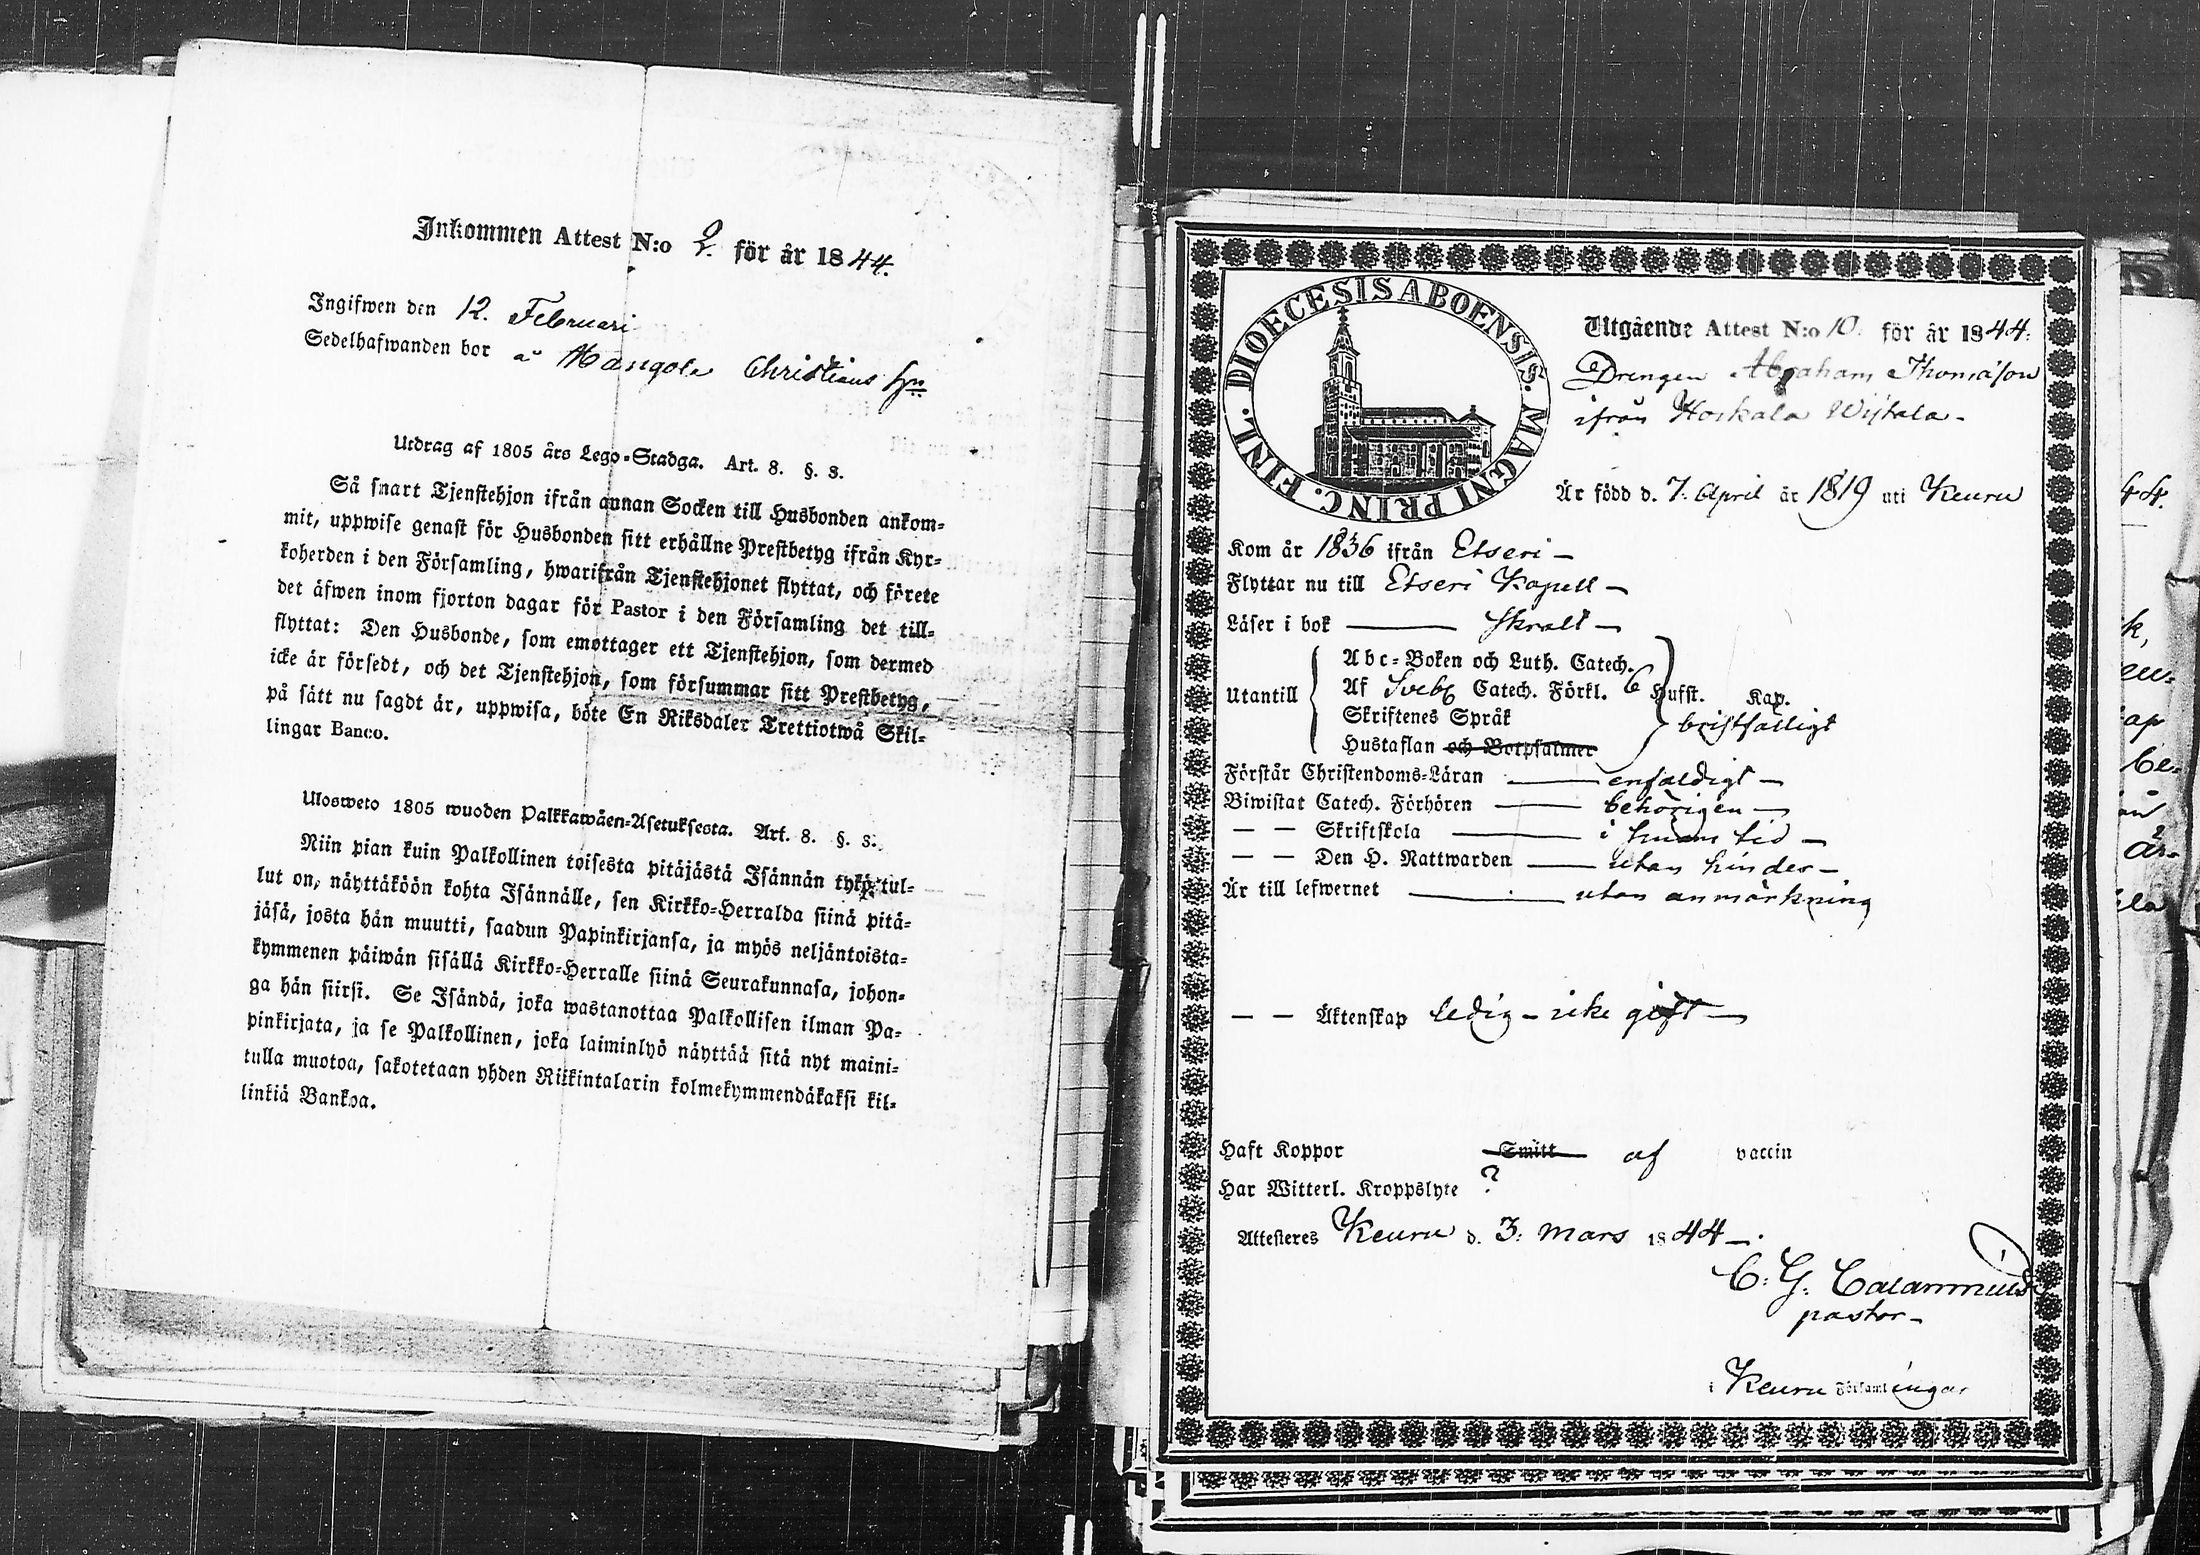 Inkommen Attest N:o 2. för år 1844.
Ingifwen den 12. Februari
Sedelhafwanden bor å Mangola Christians hn
Utdrag af 1805 års Lego-Stadga. Art. 8. §. 3.
Så snart Tjenstehjon ifrån annan Socken till Husbonden ankom-
mit, uppwise genast för Husbonden sitt erhållne Prestbetyg ifrån Kyr-
koherden i den Församling, hwarifrån Tjenstehjonet flyttat, och förete
det äfwen inom fjorton dagar för Pastor i den Församling det till-
flyttat: Den Husbonde, som emottager ett Tjenstehjon, som dermed
icke är försedt, och det Tjenstehjon, som försummar sitt Prestbetyg,
på sätt nu sagdt är, uppwisa, böte En Riksdaler Trettiotwå Skil-
lingar Banco.
Ulosweto 1805 wuoden Palkkawäen-Asetuksesta. Art. 8. §. 3.
Niin pian kuin Palkollinen toisesta pitäjästä Isännän tykö tul-
lut on, näyttäköön kohta Isännälle, sen Kirkko-Herralda siinä pitä-
jäsä, josta hän muutti, saadun Papinkirjansa, ja myös neljäntoista-
kymmenen päiwän sisällä Kirkko-Herralle siinä Seurakunnasa, johon-
ga hän siirsi. Se Isändä, joka wastanottaa Palkollisen ilman Pa-
pinkirjata, ja se Palkollinen, joka laiminlyö näyttää sitä nyt maini-
tulla muotoa, sakotetaan yhden Riikintalarin kolmekymmendäkaksi kil-
linkiä Bankoa.
DIOECESIS ABOENSIS. MAGNI PRINC. FINL.
Utgående Attest N:o 10. för år 1844.
Drengen Abraham Thomasson
ifrån Hoskala Wijtala-
Är född d. 7. April år 1819 uti Keuru
Kom år 1836 ifrån Etseri-
Flyttar nu till Etseri Kapell-
Läser i bok skralt-
Utantill
Abc-Boken och Luth. Catech.
Af Sveb Catech. Förkl. 6 Hufst. Kap.
Skriftenes Språk bristfälligt
Hustaflan och Botpsalmer
Förstår Christendoms-Läran enfaldigt-
Biwistat Catech. Förhören behörigen-
— — Skriftskola i sinom tid-
— — Den H. Nattwarden utan hinder-
Är till lefwernet utan anmärkning
— — Äktenskap ledig-icke gift-
Haft Koppor Smitt af vaccin
Har Witterl. Kroppslyte ?
Attesteres Keuru d. 3. mars 1844-.
C. G. Calamnius
pastor-
i Keuru Församlingar